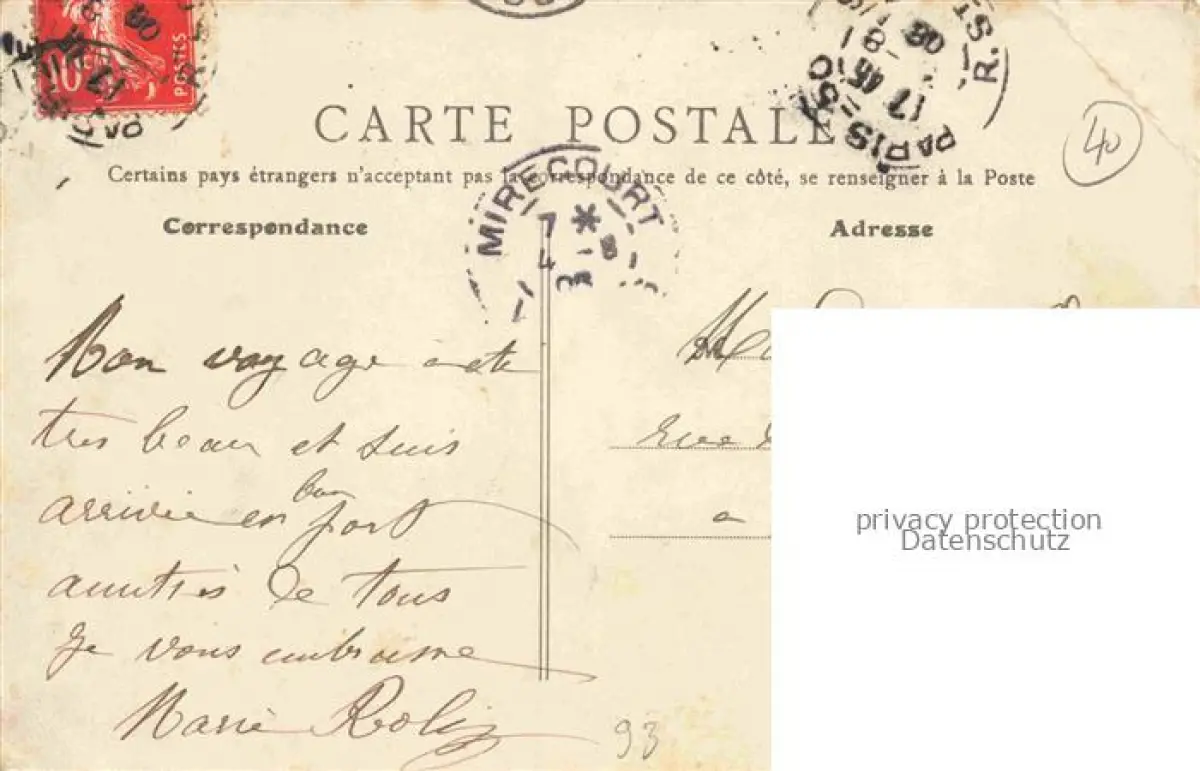 10
POSTES
CARTE POSTALE
PARIS-50
17 45
-8
08
R.
40
Certains pays étrangers n'acceptant pas la correspondance de ce côté, se renseigner à la Poste
MIRECOURT
7 *
4
Correspondance
Adresse
Mon voyage a ete
tres beau et suis
arrivée en bon port
amitiés de tous
Je vous embrasse
Marie
a
privacy protection
Datenschutz
93